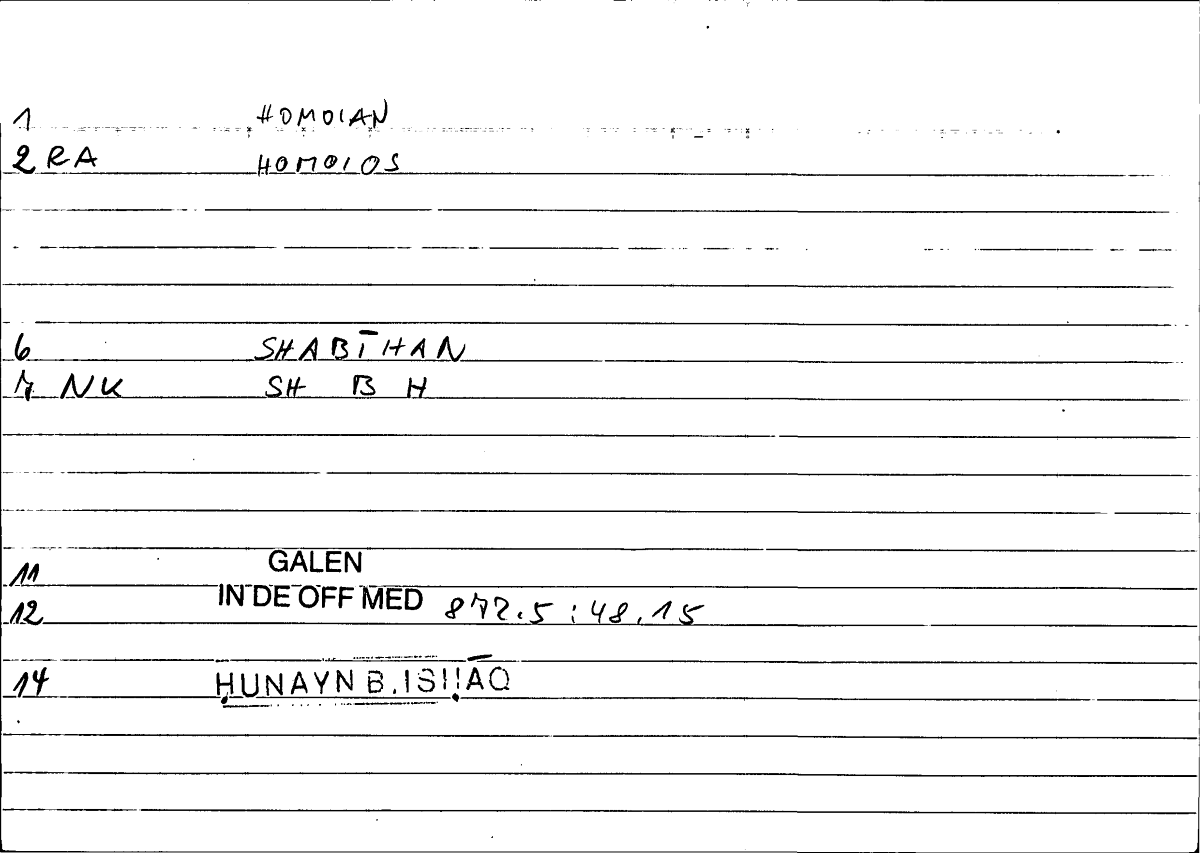 1 HOMOIAN
2 RA HOMOIOS
6 SHABĪHAN
7 NK SH B H
11 GALEN
12 IN DE OFF MED 872.5 : 48.15
14 ḤUNAYN B. ISḤĀQ